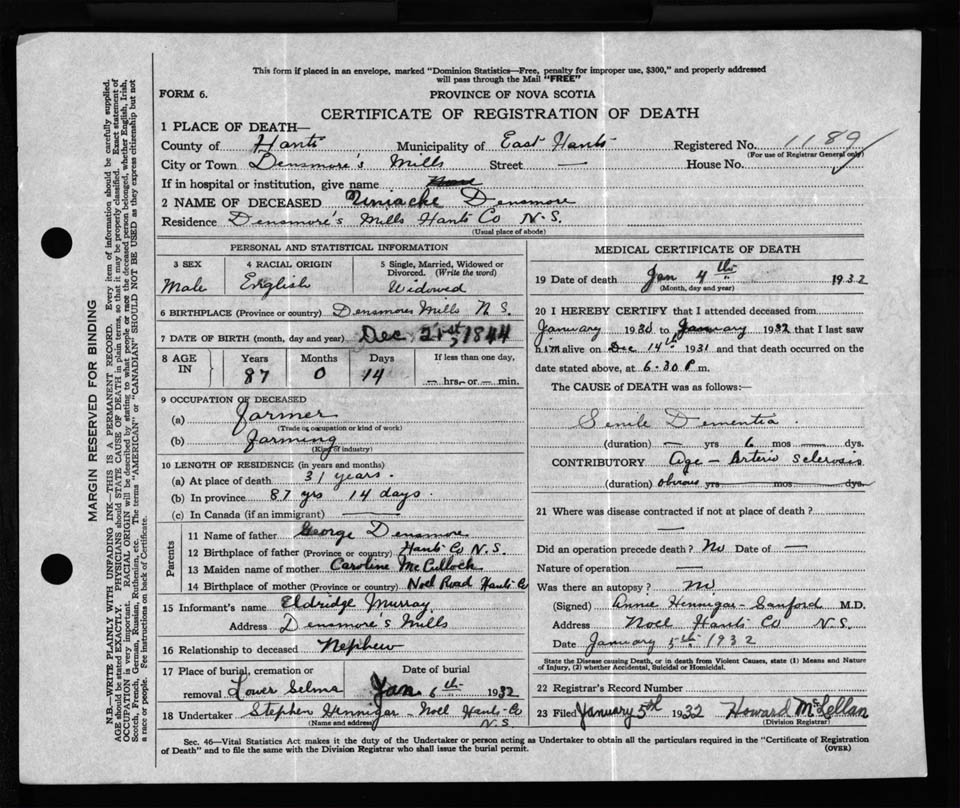 This form if placed in an envelope, marked "Dominion Statistics—Free, penalty for improper use, $300," and properly addressed
will pass through the Mail "FREE"
FORM 6.
PROVINCE OF NOVA SCOTIA
CERTIFICATE OF REGISTRATION OF DEATH
1 PLACE OF DEATH—
County of Hants Municipality of East Hants Registered No. 1189
(For use of Registrar General only)
City or Town Densmore's Mills Street — House No.
If in hospital or institution, give name
2 NAME OF DECEASED Uniacke Densmore
Residence Densmore's Mills Hants Co N.S.
(Usual place of abode)
PERSONAL AND STATISTICAL INFORMATION
3 SEX
Male
4 RACIAL ORIGIN
English
5 Single, Married, Widowed or
Divorced. (Write the word)
Widowed
6 BIRTHPLACE (Province or country) Densmores Mills N S.
7 DATE OF BIRTH (month, day and year) Dec 21st, 1844
8 AGE IN
Years Months Days If less than one day,
87 0 14 — hrs. or — min.
9 OCCUPATION OF DECEASED
(a) Farmer
(Trade or occupation or kind of work)
(b) Farming
(Kind of industry)
10 LENGTH OF RESIDENCE (in years and months)
(a) At place of death 31 years.
(b) In province 87 yrs 14 days.
(c) In Canada (if an immigrant) —
Parents
11 Name of father George Densmore
12 Birthplace of father (Province or country) Hants Co N.S.
13 Maiden name of mother Caroline McCulloch
14 Birthplace of mother (Province or country) Noel Road Hants Co
15 Informant's name Eldridge Murray
Address Densmore's Mills
16 Relationship to deceased Nephew
17 Place of burial, cremation or Date of burial
removal Lower Selma Jan 6th 1932
18 Undertaker Stephen Hennigar - Noel Hants Co
(Name and address) N.S.
MEDICAL CERTIFICATE OF DEATH
19 Date of death Jan 4th 1932
(Month, day and year)
20 I HEREBY CERTIFY that I attended deceased from
January 1930 to January 1932 that I last saw
him alive on Dec 14th 1931 and that death occurred on the
date stated above, at 6.30 P m.
The CAUSE of DEATH was as follows:—
Senile Dementia.
(duration) — yrs 6 mos — dys.
CONTRIBUTORY Age - Arterio Sclerosis
(duration) obvious yrs — mos — dys
21 Where was disease contracted if not at place of death?
—
Did an operation precede death? No Date of —
Nature of operation —
Was there an autopsy? No
(Signed) Annie Hennigar-Sanford M.D.
Address Noel Hants Co N.S.
Date January 5th 1932
State the Disease causing Death, or in death from Violent Causes, state (1) Means and Nature
of Injury, (2) whether Accidental, Suicidal or Homicidal.
22 Registrar's Record Number
23 Filed January 5th 1932 Howard McLellan
(Division Registrar)
Sec. 46—Vital Statistics Act makes it the duty of the Undertaker or person acting as Undertaker to obtain all the particulars required in the "Certificate of Registration
of Death" and to file the same with the Division Registrar who shall issue the burial permit.
(OVER)
MARGIN RESERVED FOR BINDING
N.B.—WRITE PLAINLY WITH UNFADING INK—THIS IS A PERMANENT RECORD. Every item of information should be carefully supplied.
AGE should be stated EXACTLY. PHYSICIANS should STATE CAUSE OF DEATH in plain terms, so that it may be properly classified. Exact statement of
OCCUPATION is very important. RACIAL ORIGIN will be described by stating to what people or race the deceased person belonged, whether English, Irish,
Scotch, French, German, Russian, Ruthenian, etc. The terms "AMERICAN" or "CANADIAN" SHOULD NOT BE USED as they express citizenship but not
a race or people. See instructions on back of Certificate.